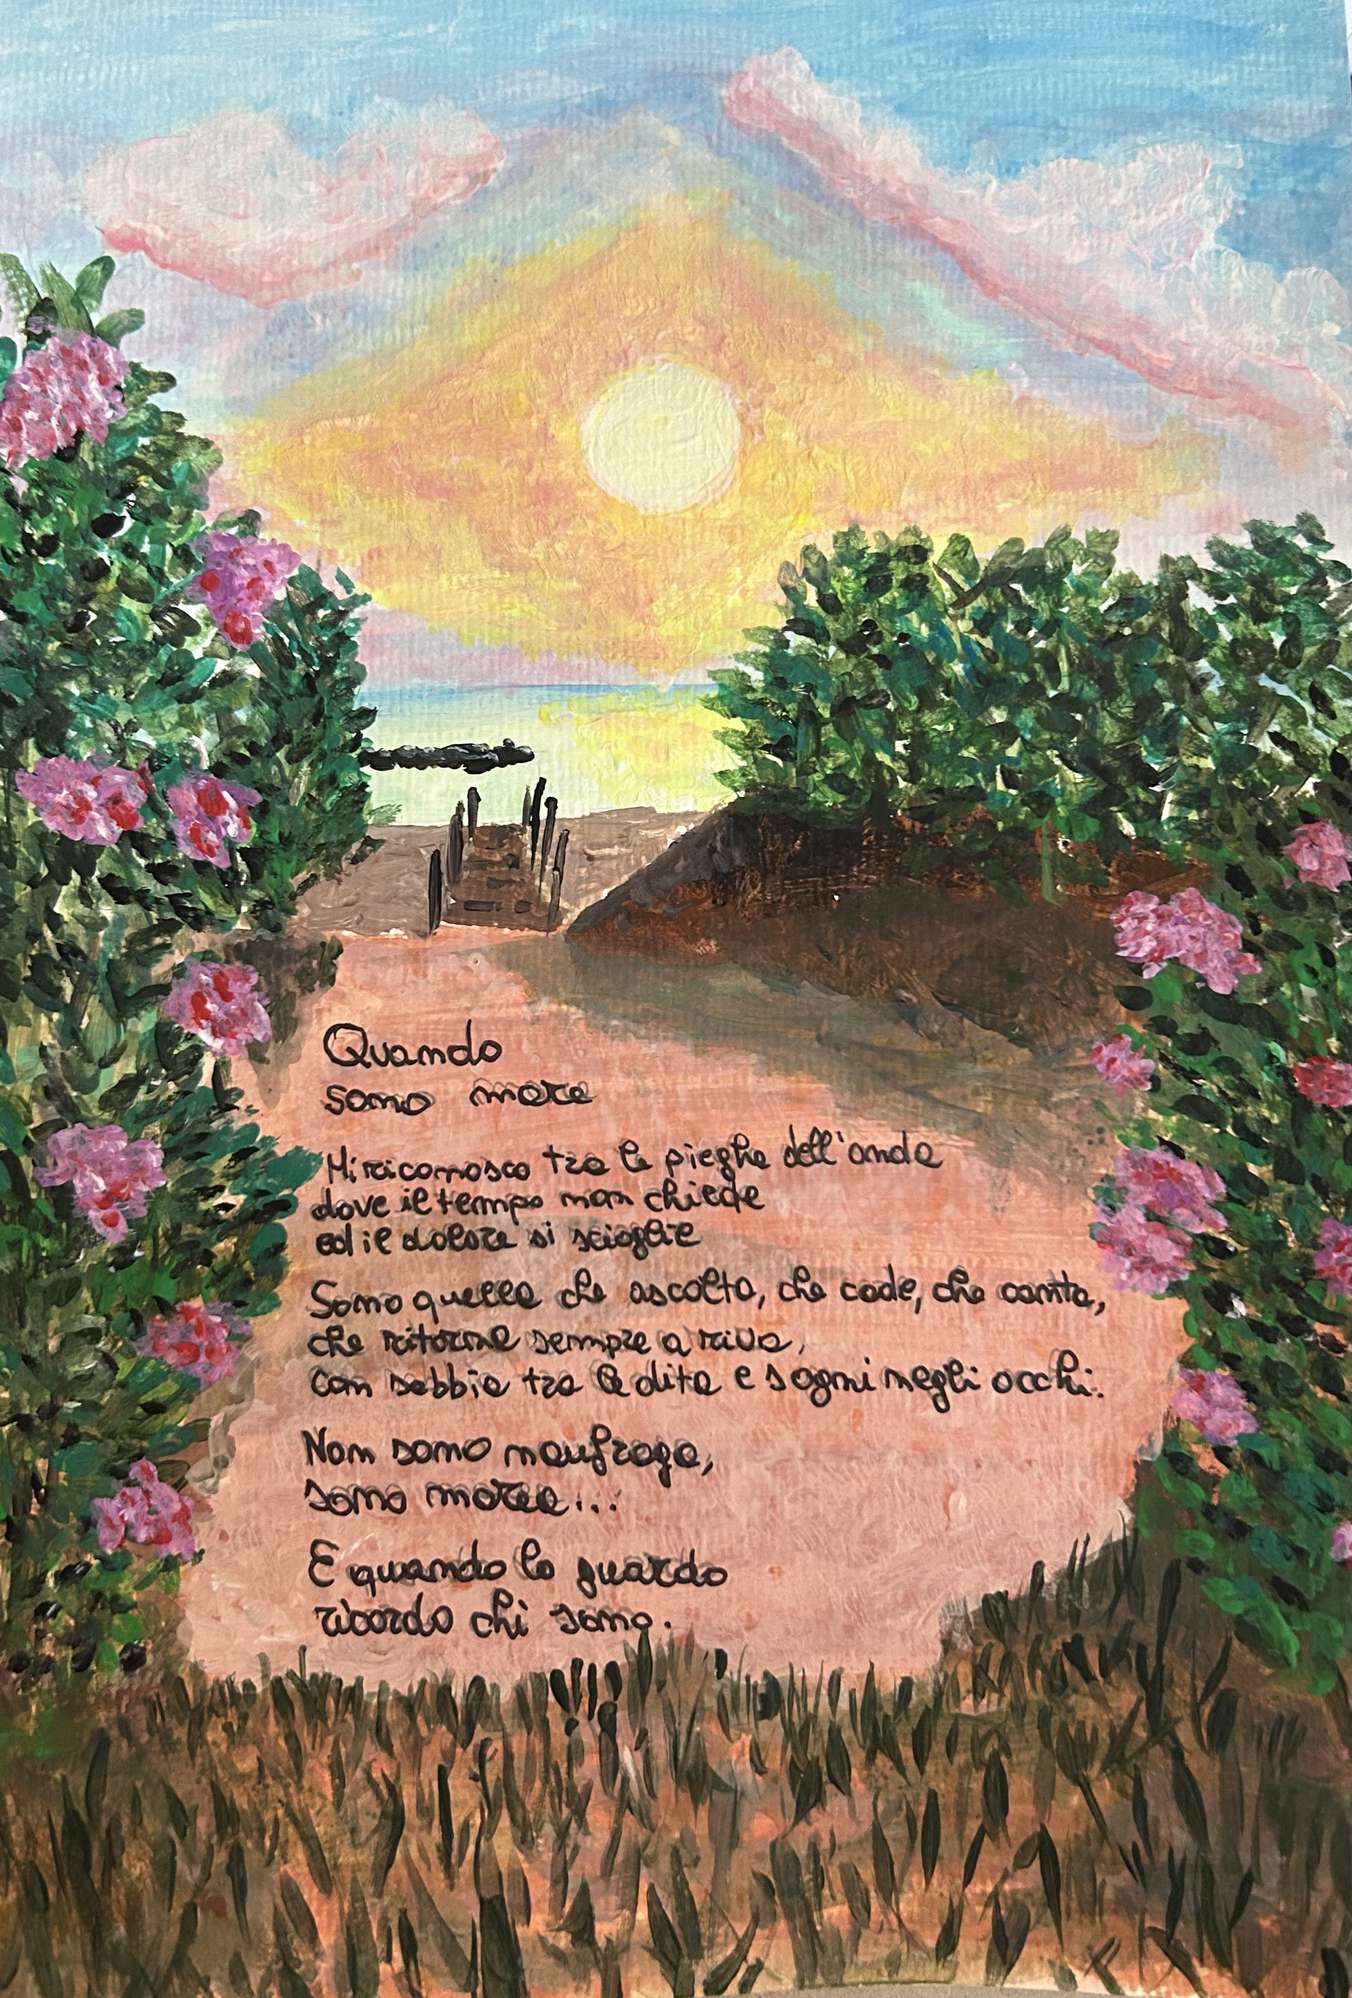 Quando
sono mare
Mi riconosco tra le pieghe dell'onda
dove il tempo non chiede
ed il dolore si scioglie
Sono quella che ascolta, che cade, che canta,
che ritorna sempre a riva,
con sabbia tra le dita e sogni negli occhi.
Non sono naufraga,
sono marea...
E quando lo guardo
ricordo chi sono.